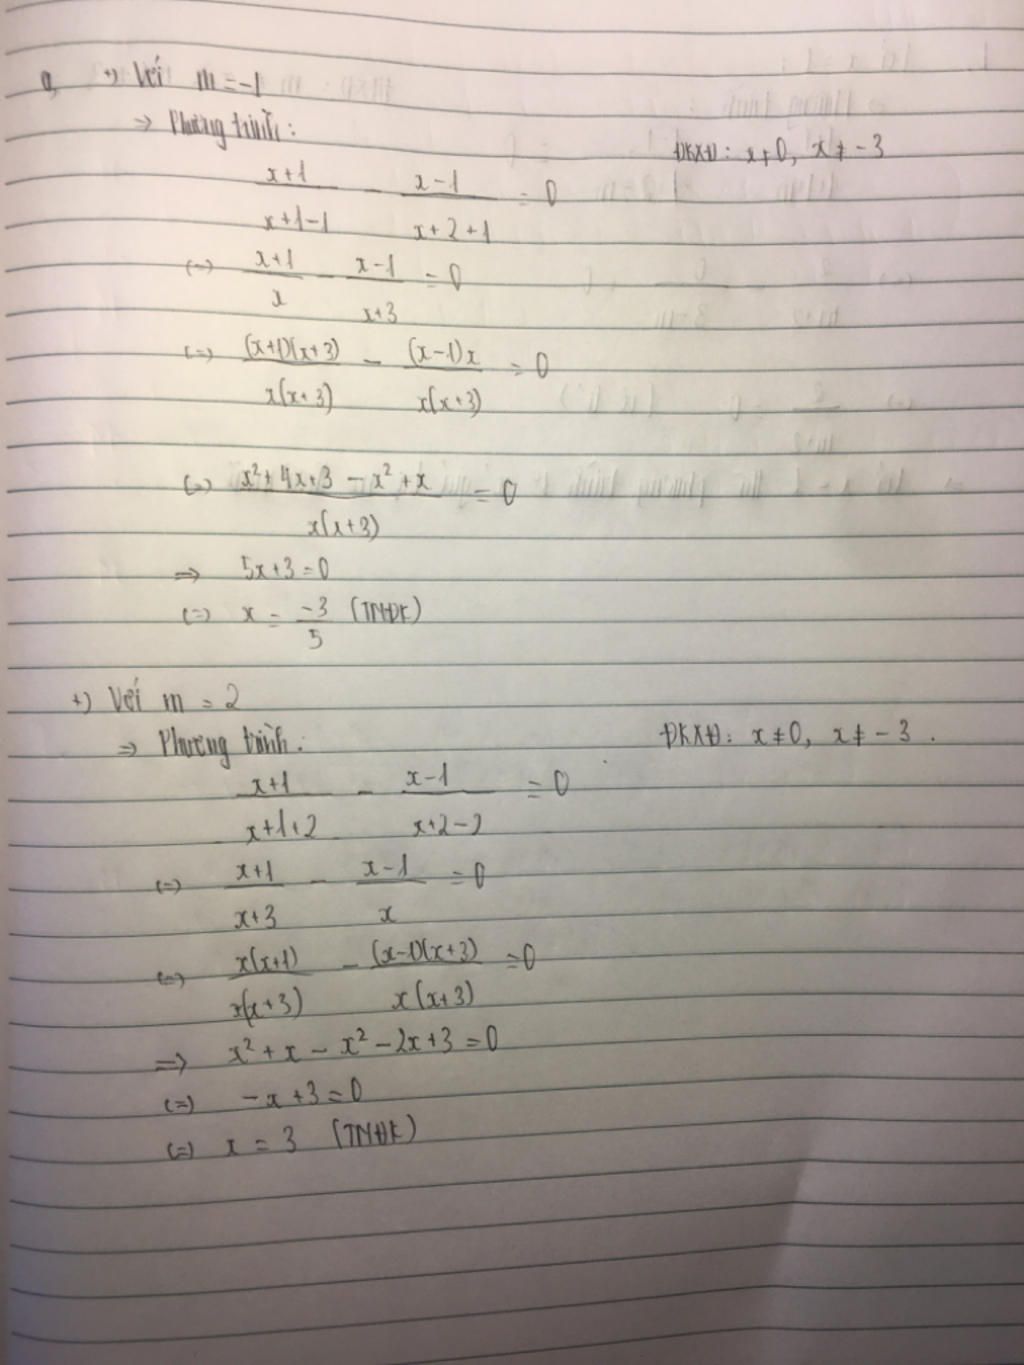 a, +) Với m = -1
⇒ Phương trình: ĐKXĐ: x≠0, x≠-3
(x+1)/(x+1-1) - (x-1)/(x+2+1) = 0
(=) (x+1)/x - (x-1)/(x+3) = 0
(=) (x+1)(x+3)/x(x+3) - (x-1)x/x(x+3) = 0
(=) (x²+4x+3-x²+x)/x(x+3) = 0
⇒ 5x+3=0
(=) x = -3/5 (TMĐK)
+) Với m = 2
⇒ Phương trình: ĐKXĐ: x≠0, x≠-3.
(x+1)/(x+1+2) - (x-1)/(x+2-2) = 0
(=) (x+1)/(x+3) - (x-1)/x = 0
(=) x(x+1)/x(x+3) - (x-1)(x+3)/x(x+3) = 0
⇒ x²+x-x²-2x+3=0
(=) -x+3=0
(=) x = 3 (TMĐK)